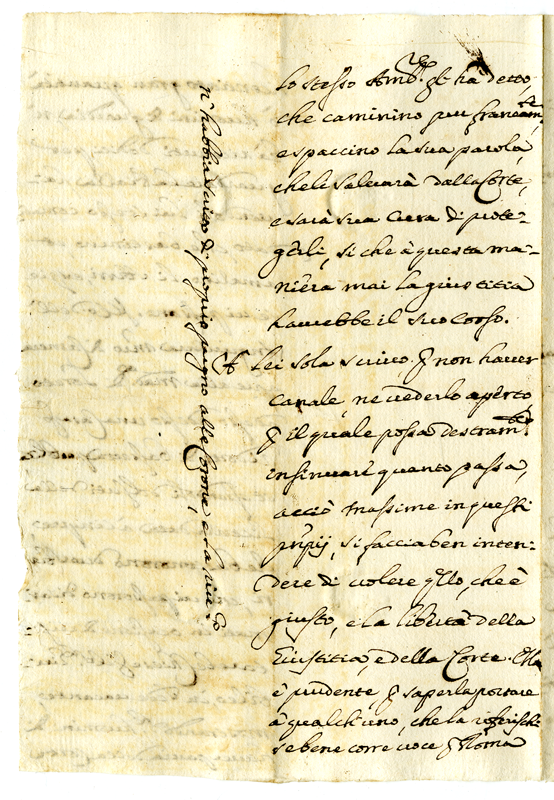 lo stesso Amb.re gl'hà detto,
che caminino pur francam.te
e spaccino la sua parola,
che li salvarà dalla Corte,
e sarà sua cura di prote-
gerli, si che à questa ma-
niera mai la giustitia
havrebbe il suo corso.
A Lei sola scrivo, p non haver
canale, ne vederlo aperto
p il quale possa destram.te
insinuare quanto passa,
acciò massime in questi
prñpij, si faccia ben inten-
dere di volere qllo, che è
giusto, e la libertà della
Giustitia, e della Corte. Ella
è prudente, p saperla portare
à qualch'uno, che la riferischi
se bene corre voce p Roma
n' habbia scritto di proprio pugno alle Corone, e la riv.